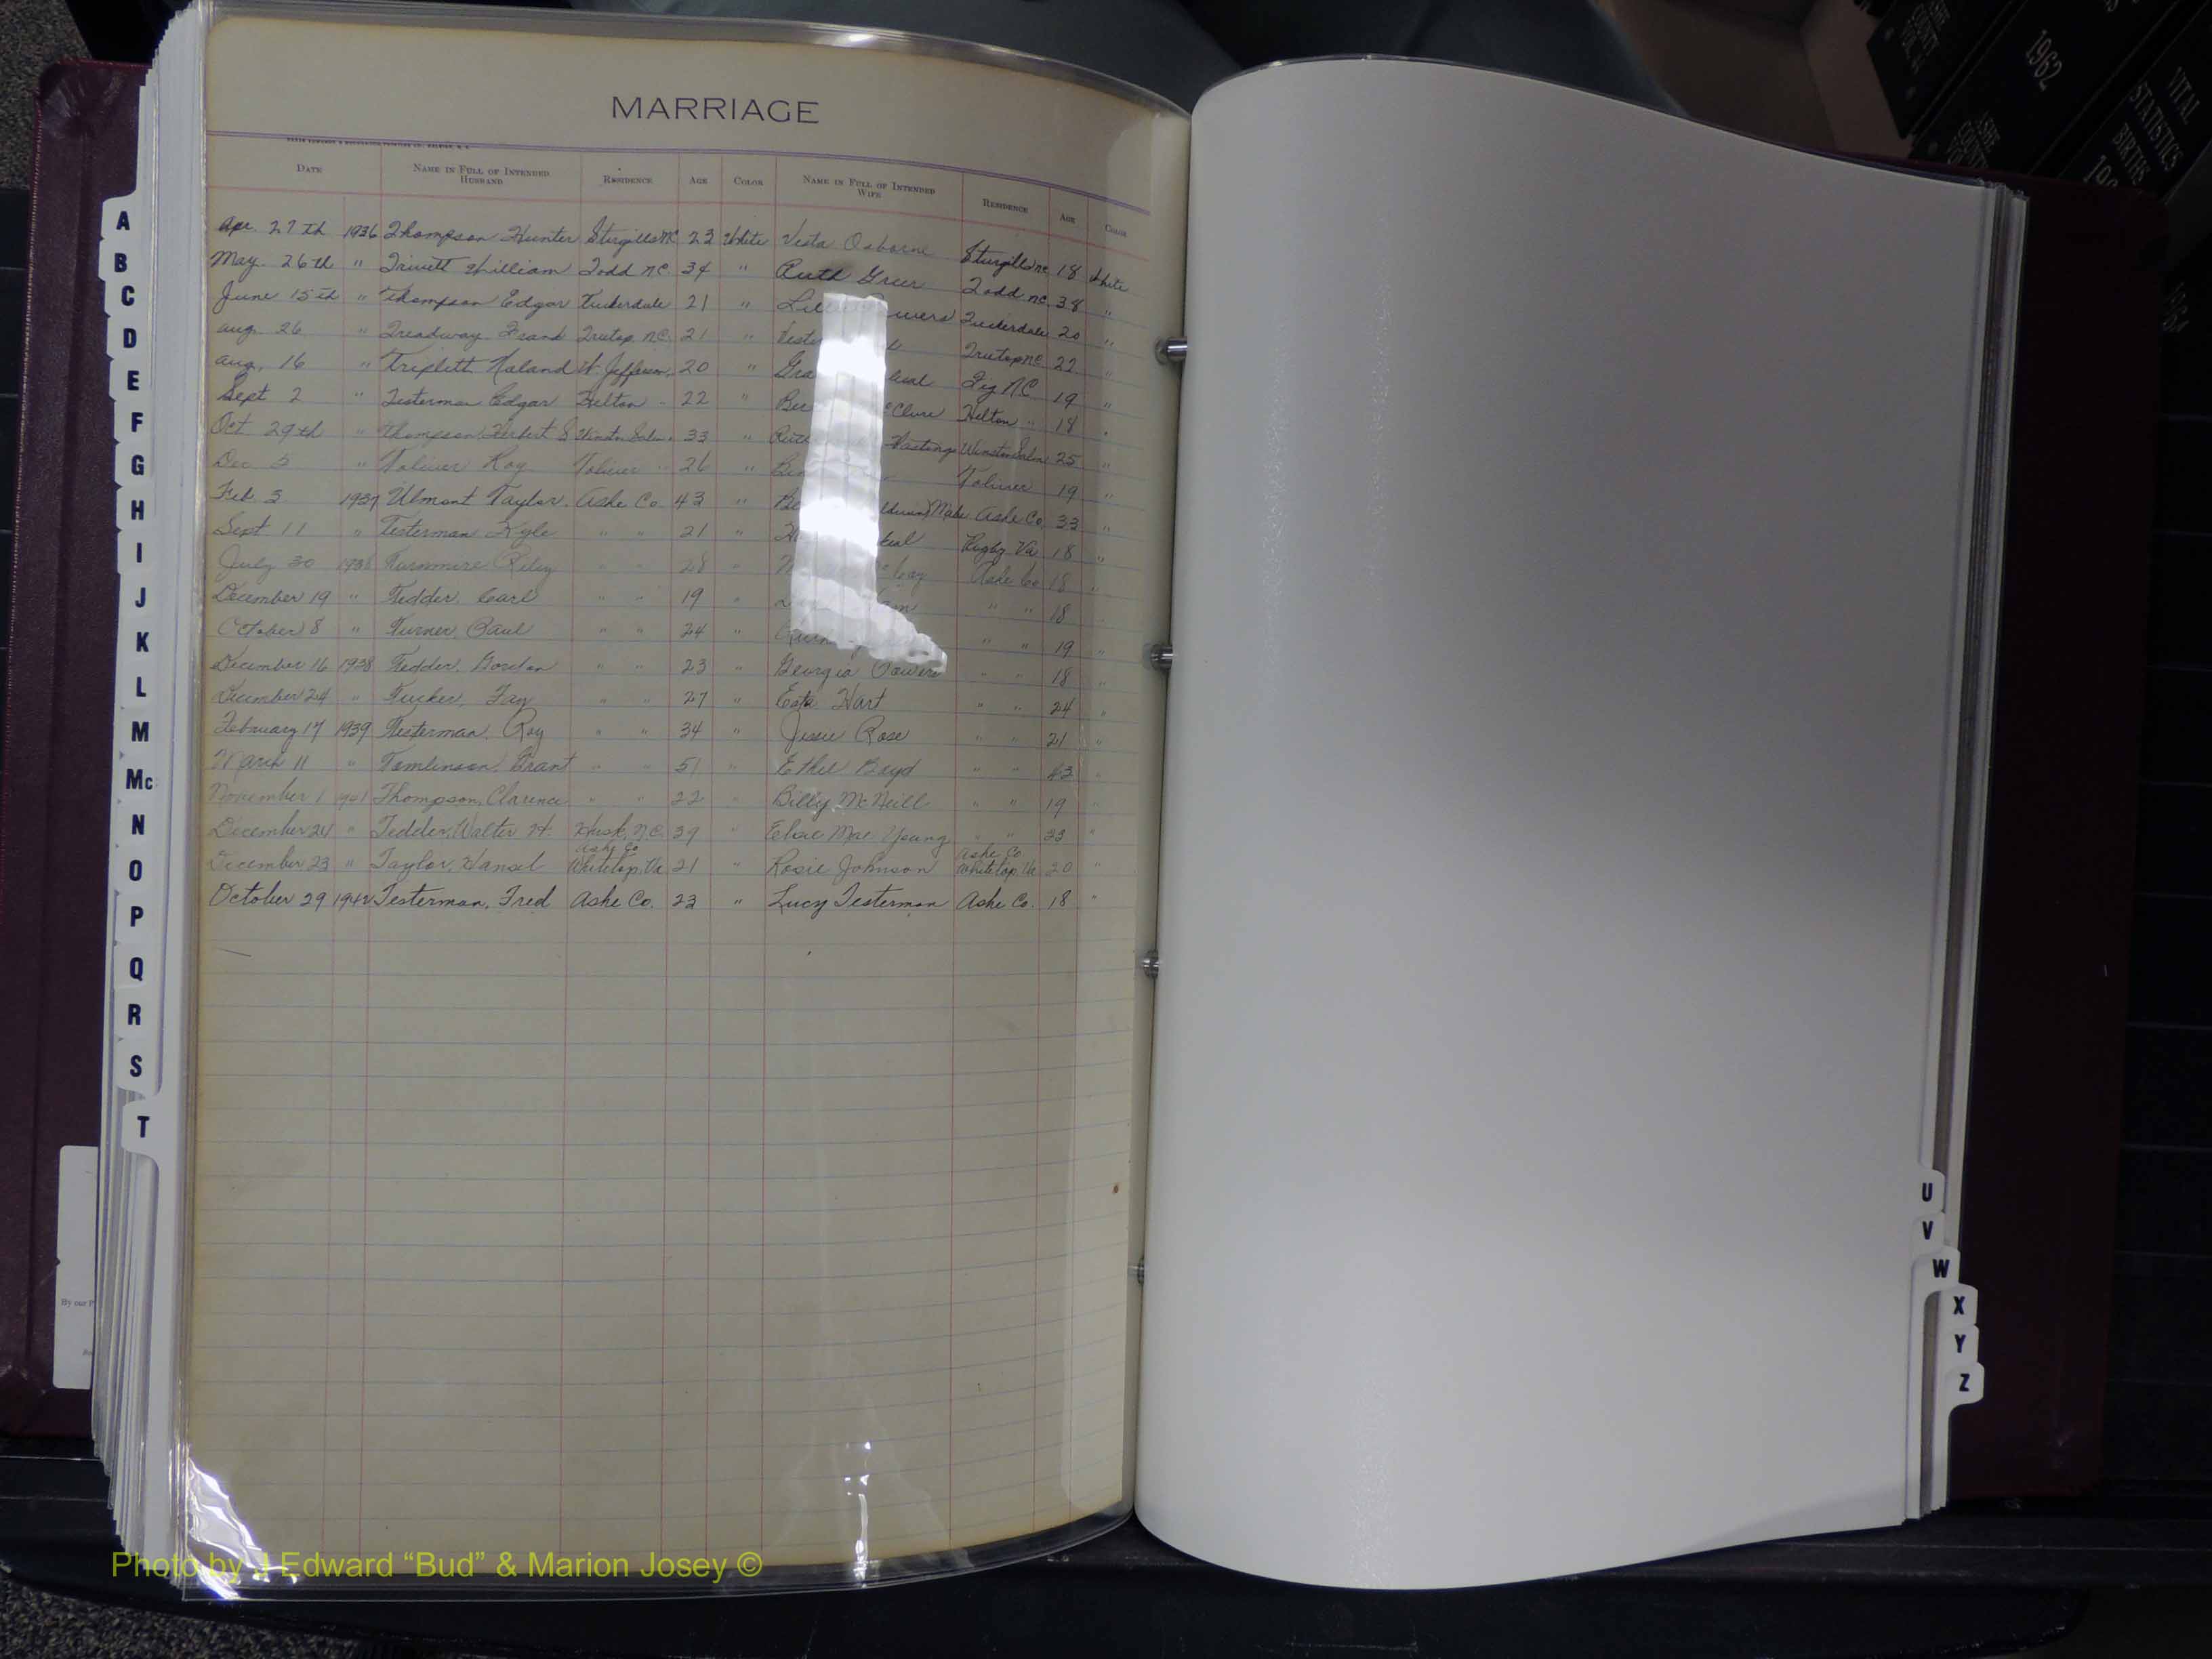 MARRIAGE
DATE NAME IN FULL OF INTENDED HUSBAND RESIDENCE AGE COLOR NAME IN FULL OF INTENDED WIFE RESIDENCE AGE COLOR
Apr. 27th 1936 Thompson Hunter Sturgills NC 23 White Vesta Osborne Sturgills NC 18 White
May. 26th " Trivett William Todd NC. 34 " Ruth Greer Todd NC 38 "
June 15th " Thompson Edgar Tuckerdale 21 " Tuckerdale 20 "
Aug. 26 " Treadway Frank Treetop, N.C. 21 " Treetop NC 22 "
Aug. 16 " Triplett Haland W. Jefferson, 20 " Fig N.C. 19 "
Sept 2 " Testerman Edgar Helton " 22 " McClure Helton " 18 "
Oct 29th " Thompson, Herbert S Winston Salem. 33 " Hastings Winston Salem 25 "
Dec 5 " Toliver Roy Toliver " 26 " Toliver 19 "
Feb. 3 1937 Ulmont Taylor. Ashe Co. 43 " Ashe Co. 33 "
Sept. 11 " Testerman Kyle " " 21 " Rugby Va 18 "
July 30 1938 Turnmire Riley " " 28 " Ashe Co 18 "
December 19 " Tedder, Carl " " 19 " " " 18
October 8 " Turner, Paul " " 24 " " " 19 "
December 16 1938 Tedder, Gordon " " 23 " Georgia Powers " " 18 "
December 24 " Tucker, Fay " " 27 " Esta Hart " " 24 "
February 17 1939 Testerman, Roy " " 34 " Jessie Rose " " 21 "
March 11 " Tomlinson, Grant " " 51 " Ethel Boyd " " 43 "
November 1 1941 Thompson, Clarence " " 22 " Billy McNeill " " 19 "
December 24 " Tedder, Walter H. Husk, N.C. 39 " Elsie Mae Young " " 22 "
Ashe Co Ashe Co
December 23 " Taylor, Hansel Whitetop, Va 21 " Rosie Johnson Whitetop, Va 20 "
October 29 1942 Testerman, Fred Ashe Co. 23 " Lucy Testerman Ashe Co. 18 "
A
B
C
D
E
F
G
H
I
J
K
L
M
Mc
N
O
P
Q
R
S
T
U
V
W
X
Y
Z
By our P
1962
VITAL
STATISTICS
BIRTHS
Photo by J Edward “Bud” & Marion Josey ©